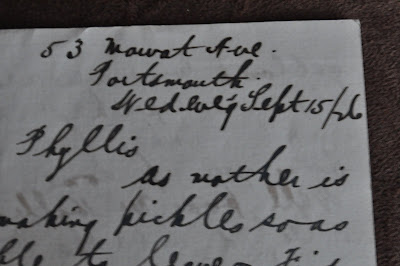 53 Mowat Ave.
Portsmouth.
Wed. eve'g Sept 15/26
Phyllis
as mother is
making pickles so as
to